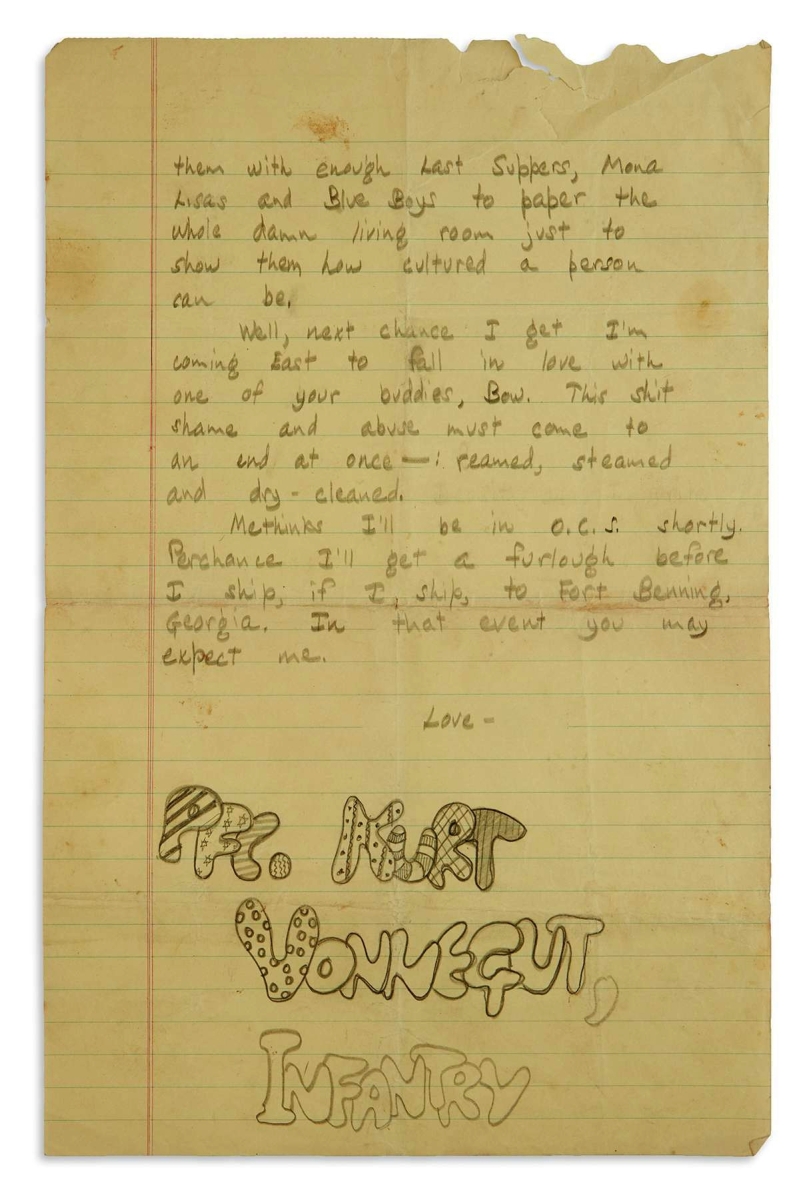 them with enough Last Suppers, Mona
Lisas and Blue Boys to paper the
whole damn living room just to
show them how cultured a person
can be.
Well, next chance I get I'm
coming East to fall in love with
one of your buddies, Bow. This shit
shame and abuse must come to
an end at once —: reamed, steamed
and dry-cleaned.
Methinks I'll be in O.C.S. shortly.
Perchance I'll get a furlough before
I ship, if I ship, to Fort Benning,
Georgia. In that event you may
expect me.
Love -
PFC. KURT
VONNEGUT,
INFANTRY